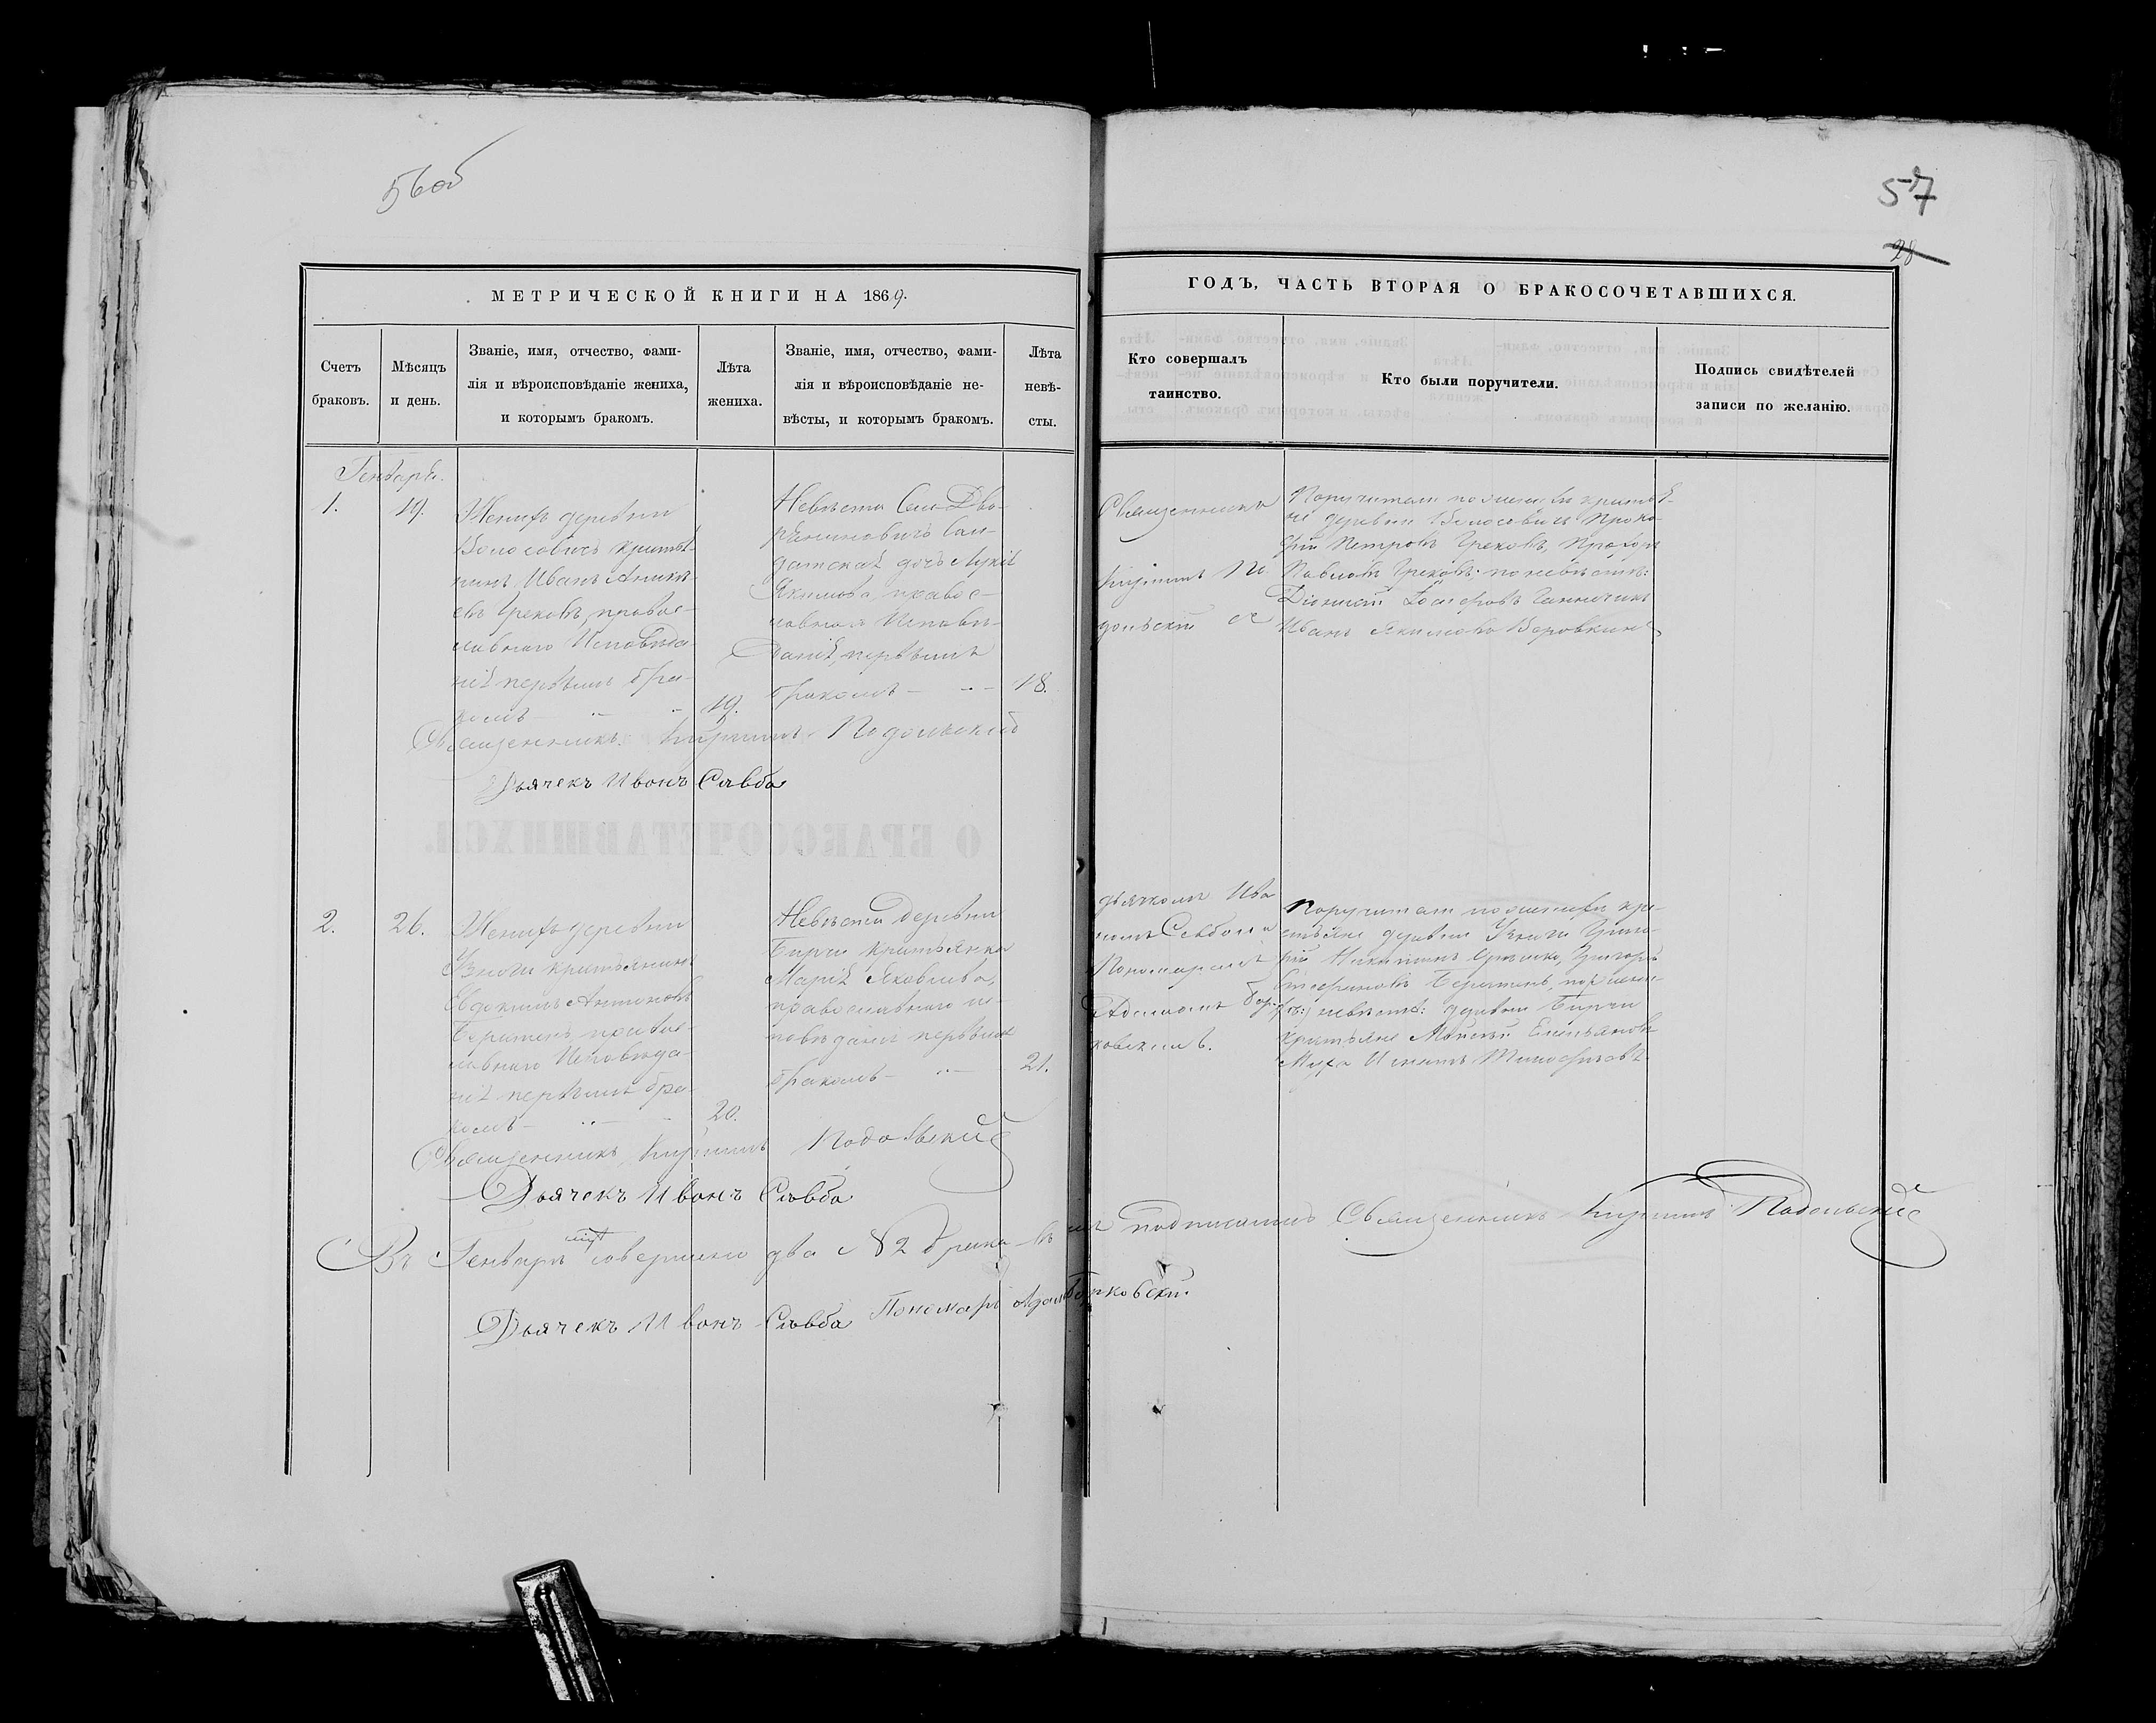 56об
57
28
МЕТРИЧЕСКОЙ КНИГИ НА 1869.
ГОДЪ, ЧАСТЬ ВТОРАЯ О БРАКОСОЧЕТАВШИХСЯ.
Счетъ
браковъ.
Мѣсяцъ
и день.
Званіе, имя, отчество, фами-
лія и вѣроисповѣданіе жениха,
и которымъ бракомъ.
Лѣта
жениха.
Званіе, имя, отчество, фами-
лія и вѣроисповѣданіе не-
вѣсты, и которымъ бракомъ.
Лѣта
невѣ-
сты.
Кто совершалъ
таинство.
Кто были поручители.
Подпись свидѣтелей
записи по желанію.
Генваря.
1.
19.
Женихъ деревни
Волосовичъ крестья-
нинъ Иванъ
Грековъ, правос-
лавнаго Исповѣда-
нія первымъ бра-
комъ
19.
Невѣста Села Дво-
сал-
датская дочь
Якимова, правос-
лавнаго Исповѣ-
данія, первымъ
бракомъ
18.
Священникъ
Кириллъ По
дольскій съ
Поручители по женихѣ крестья-
не деревни Волосовичъ Проко-
фій Петровъ Грековъ, Прохоръ
Павловъ Грековъ; по невѣстѣ:
Иванъ Якимовъ Воровкинъ
Священникъ Кириллъ Подольскій
Дьячекъ Иванъ Савба
2.
26.
Женихъ деревни
крестьянинъ
Евдокимъ Антоновъ
правос-
лавнаго Исповѣда-
нія первымъ бра-
комъ
20.
Невѣста деревни
Бирчи крестьянка
Марія Яковлева,
православнаго ис-
повѣданія первымъ
бракомъ
21.
дьячкомъ Ива
номъ Савбою и
Пономаремъ
Адамомъ Бор-
ковскимъ.
Поручители по женихѣ кре-
стьяне деревни
Никитинъ Григорій
невѣстѣ: деревни Бирчи
крестьяне Моисей Емельяновъ
Муха Игнатъ Тимофѣевъ
Священникъ Кириллъ Подольскій
Дьячекъ Иванъ Савба
Въ Генварѣ совершено два 2 брака въ чемъ подписались Священникъ Кириллъ Подольскій
Дьячекъ Иванъ Савба Пономарь Адамъ Борковскій.